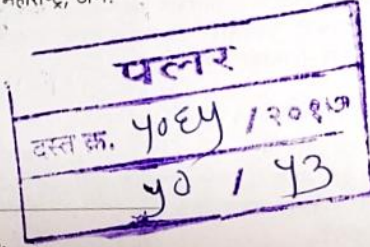 महाराष्ट्र,
पलर
दस्त क्र. ५०६५ / २०१७
५० / ५३